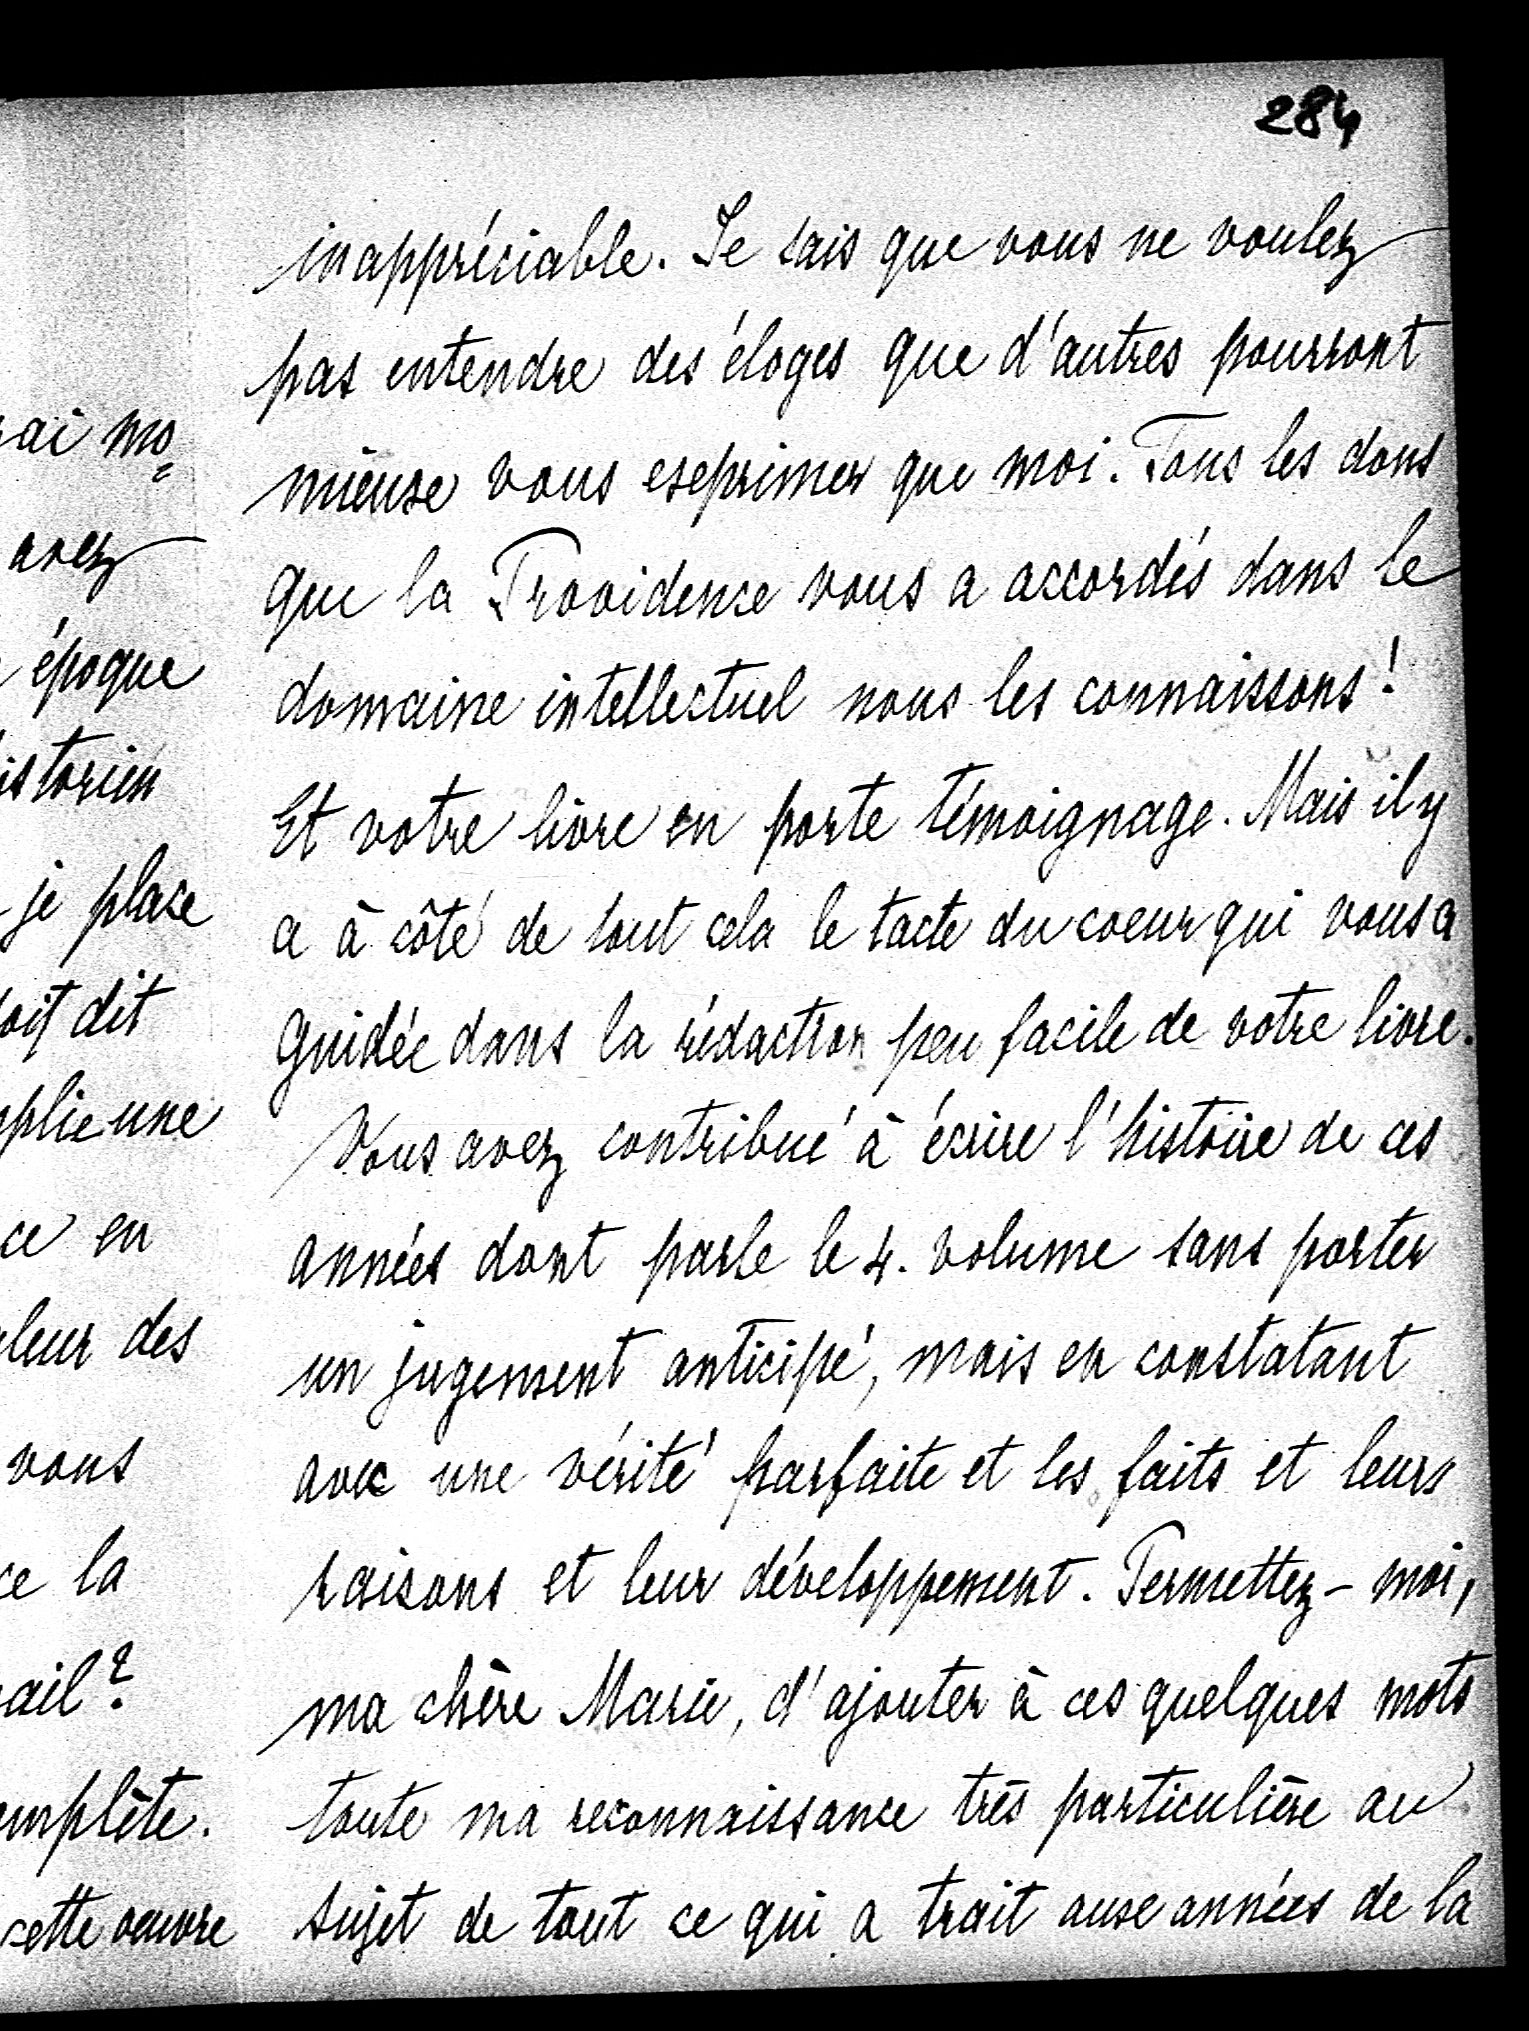 284
inappréciable. Je sais que vous ne voulez
pas entendre des éloges que d'autres pourront
mieux vous exprimer que moi. Tous les dons
que la Providence vous a accordés dans le
domaine intellectuel nous les connaissons!
Et votre livre en porte témoignage. Mais il y
a à côté de tout cela le tacte du coeur qui vous a
guidée dans la rédaction peu facile de votre livre.
Vous avez contribué à écrire l'histoire de ces
années dont parle le 4. volume sans porter
un jugement anticipé, mais en constatant
avec une vérité parfaite et les faits et leurs
raisons et leur développement. Permettez-moi,
ma chère Marie, d'ajouter à ces quelques mots
toute ma reconnaissance très particulière au
sujet de tout ce qui a trait aux années de la
ai mo=
avez
époque
istorien
je place
soit dit
plie une
ce en
leur des
vous
ce la
ail?
mplète.
cette oeuvre